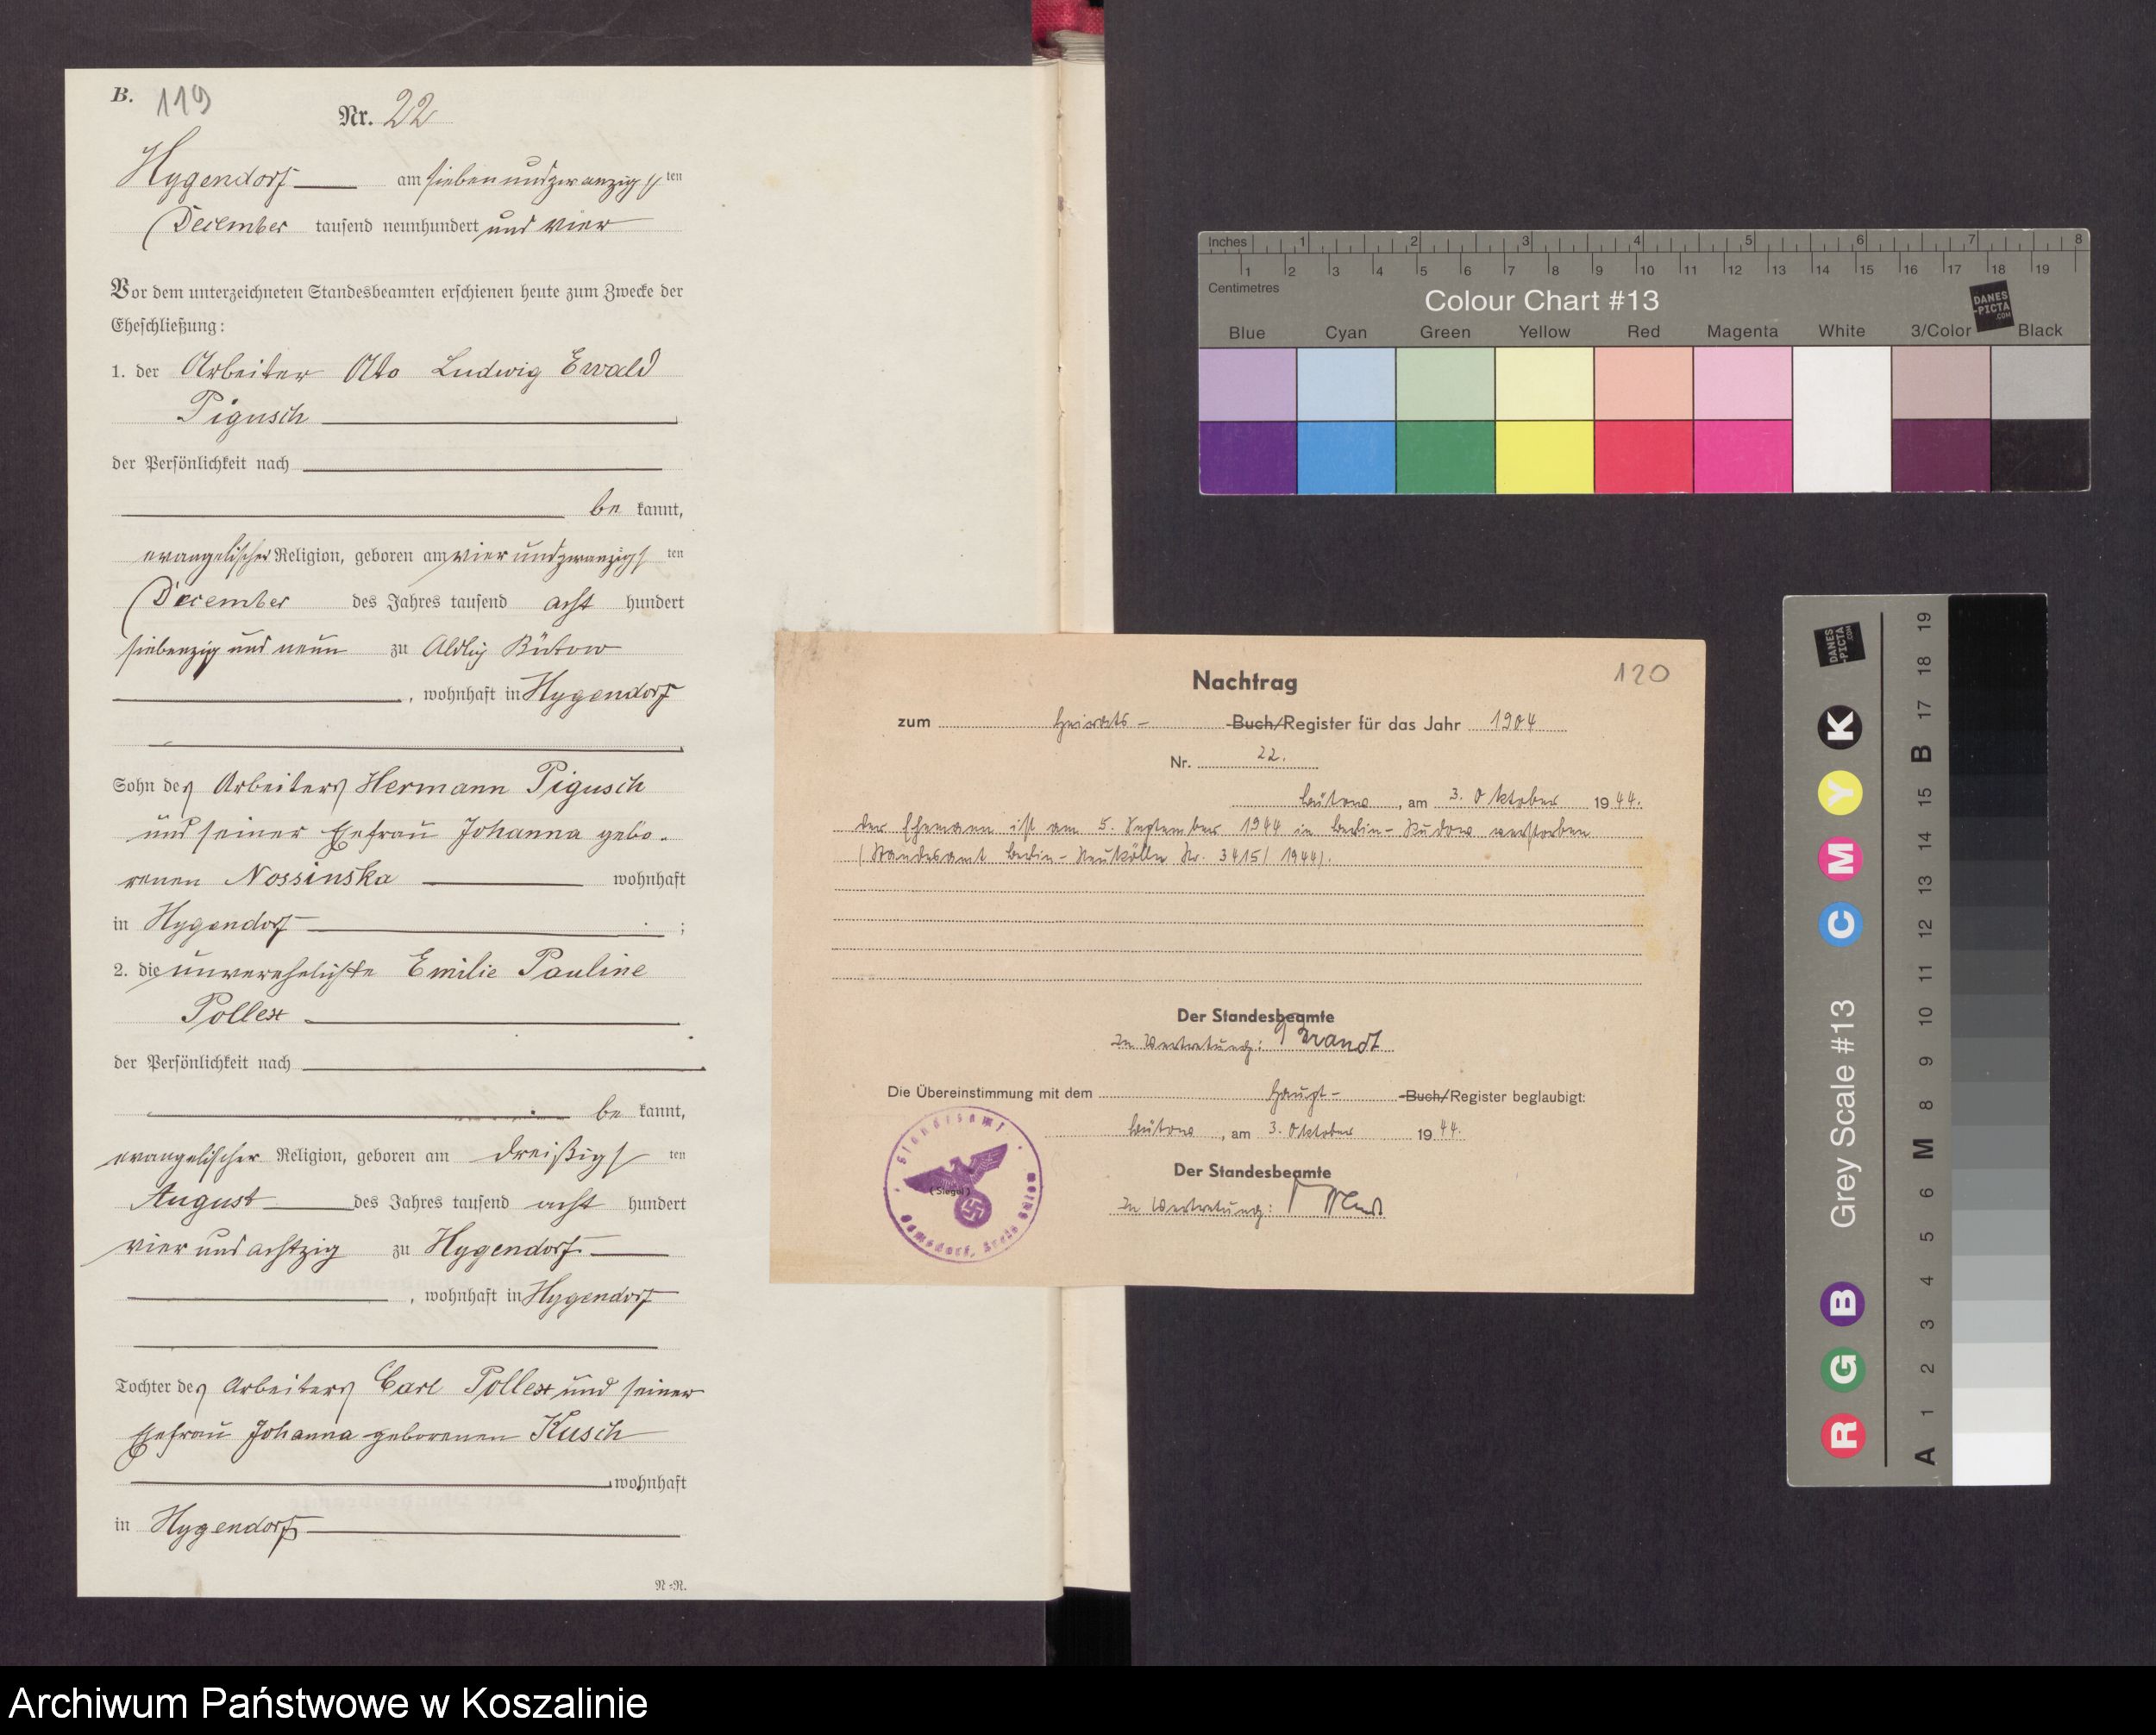 B. 119
Nr. 22
Hygendorf am sieben und zwanzigsten
December tausend neunhundert und vier
Vor dem unterzeichneten Standesbeamten erschienen heute zum Zwecke der
Eheschließung:
1. der Arbeiter Otto Ludwig Ewald
Pigusch
der Persönlichkeit nach
be kannt,
evangelischer Religion, geboren am vier und zwanzigsten
December des Jahres tausend acht hundert
siebenzig und neun zu Adlig Bütow
, wohnhaft in Hygendorf
Sohn des Arbeiters Hermann Pigusch
und seiner Ehefrau Johanna gebo-
renen Nossinska wohnhaft
in Hygendorf ;
2. die unverehelichte Emilie Pauline
Pollex
der Persönlichkeit nach
be kannt,
evangelischer Religion, geboren am dreißigsten
August des Jahres tausend acht hundert
vier und achtzig zu Hygendorf
, wohnhaft in Hygendorf
Tochter des Arbeiters Carl Pollex und seiner
Ehefrau Johanna geborenen Kusch
wohnhaft
in Hygendorf
N-N.
120
Nachtrag
zum Heirats- Buch/Register für das Jahr 1904
Nr. 22.
Bütow, am 3. Oktober 1944.
Der Ehemann ist am 5. September 1944 in Berlin-Rudow verstorben
(Standesamt Berlin-Neukölln Nr. 3415/1944).
Der Standesbeamte
In Vertretung: Brandt
Die Übereinstimmung mit dem Haupt- Buch/Register beglaubigt:
Bütow, am 3. Oktober 1944.
Der Standesbeamte
In Vertretung:
(Siegel)
Standesamt
Damsdorf, Kreis Bütow
Inches 1 2 3 4 5 6 7 8
1 2 3 4 5 6 7 8 9 10 11 12 13 14 15 16 17 18 19
Centimetres
Colour Chart #13
DANES-PICTA.COM
Blue Cyan Green Yellow Red Magenta White 3/Color Black
DANES-PICTA.COM
R G B Grey Scale #13 C M Y K
A 1 2 3 4 5 6 M 8 9 10 11 12 13 14 15 B 17 18 19
Archiwum Państwowe w Koszalinie